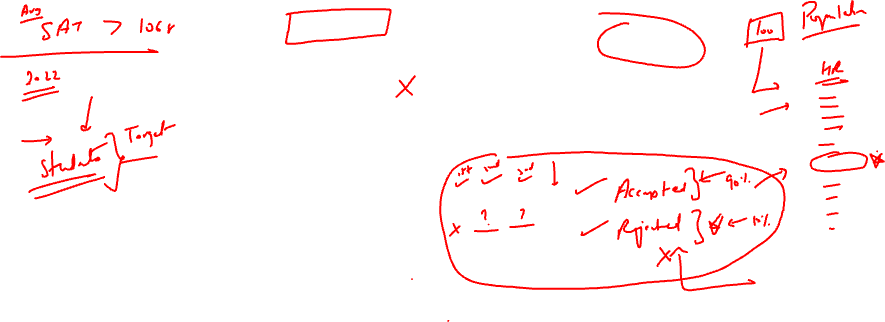 Avg
SAT > 1068
2022
Students } Target
100 Population
HR
1st 2nd 3rd
✓ ✓ ✓ ✓ Accepted } ← 90%
x ? ? ✓ Rejected } ← 10%
x